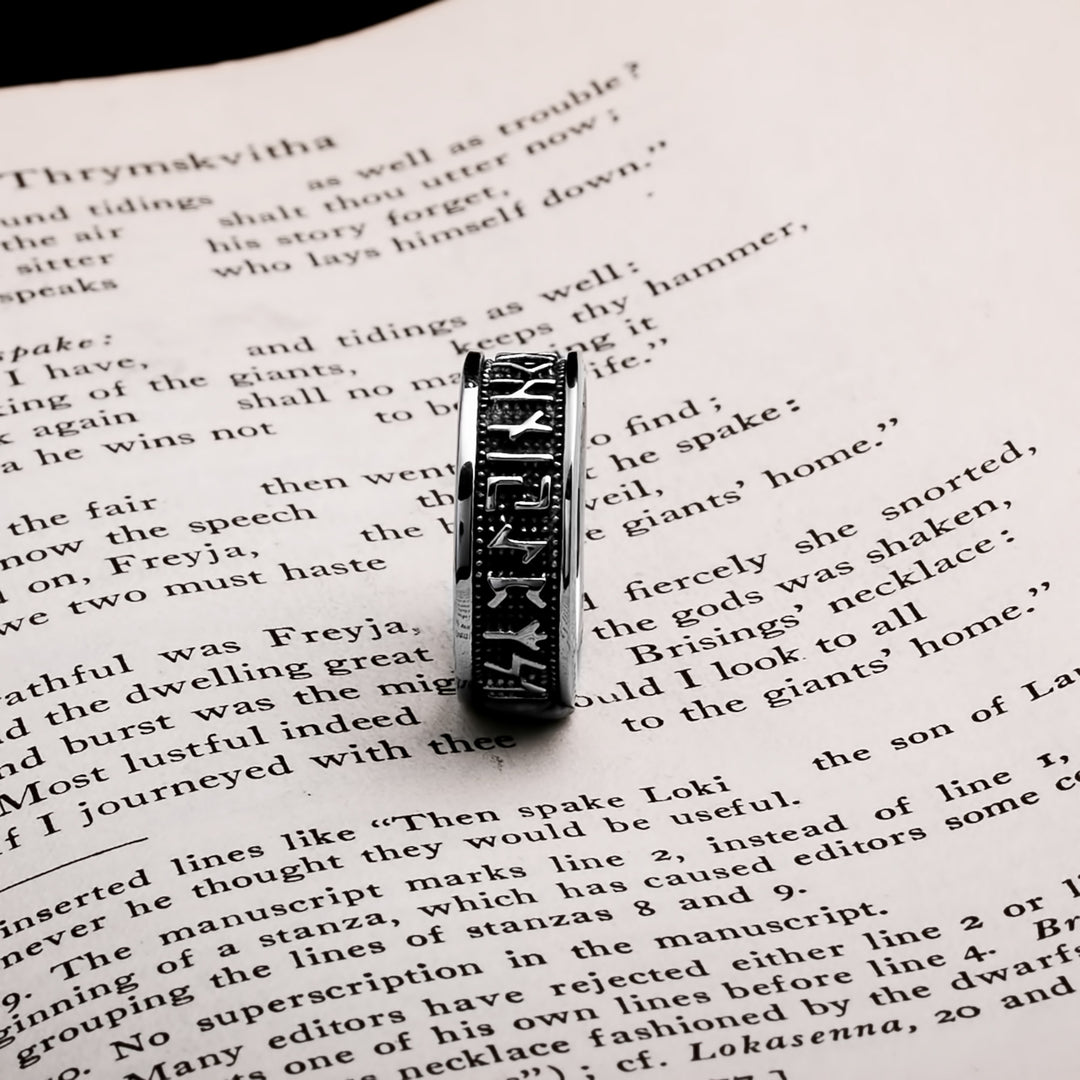 Thrymskvitha
tidings as well as trouble?
the air shalt thou utter now;
sitter his story forget,
speaks who lays himself down.”
spake:
I have, and tidings as well:
of the giants, keeps thy hammer,
again shall no it
he wins not to
the fair then went find;
now the speech he spake:
on, Freyja, the veil,
we two must haste giants’ home.”
was Freyja, fiercely she snorted,
the dwelling great the gods was shaken,
burst was the Brisings’ necklace:
Most lustful indeed I look to all
If I journeyed with thee to the giants’ home.”
inserted lines like “Then spake Loki the son of
never he thought they would be useful.
9. The manuscript marks line 2, instead of line 1,
of a stanza, which has caused editors some
grouping the lines of stanzas 8 and 9.
No superscription in the manuscript.
Many editors have rejected either line 2 or
one of his own lines before line 4.
necklace fashioned by the dwarfs
”) ; cf. Lokasenna, 20 and